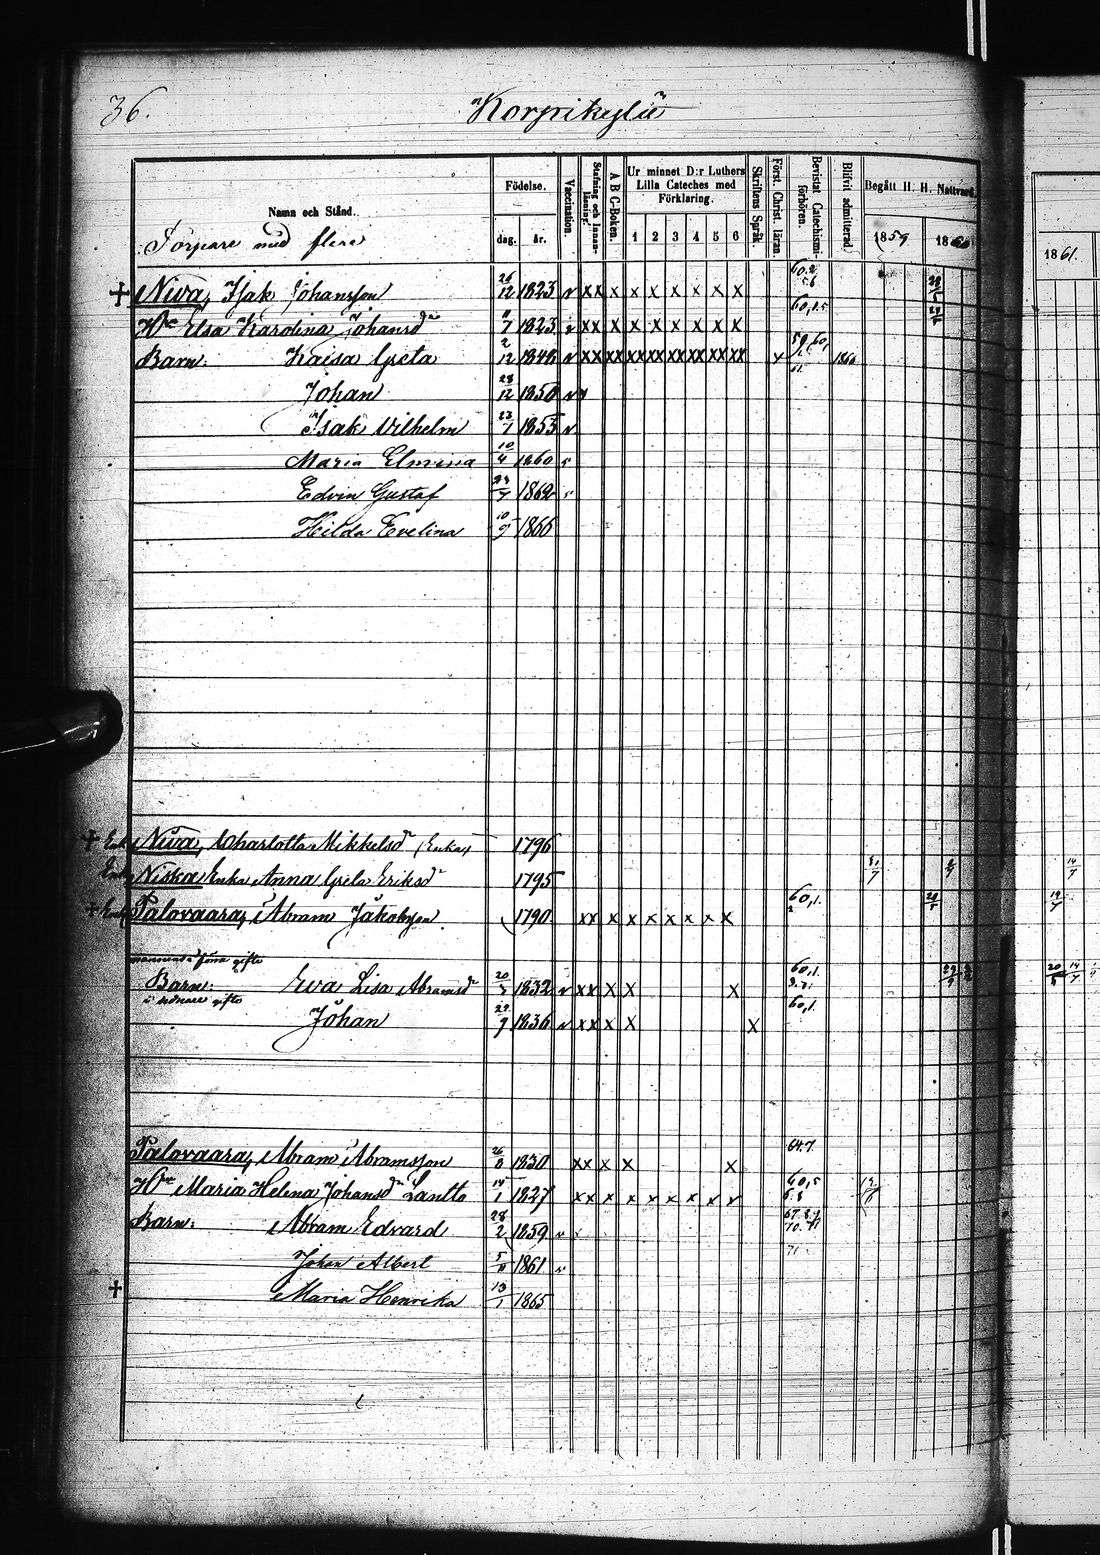 36.
"Korpikylä"
Namn och Stånd. Födelse. Vaccination. Stafning och Innanläsning. A B C-Boken. Ur minnet D:r Luthers Lilla Cateches med Förklaring. Skriftens Språk. Först. Christ. läran. Bevistat Catechismiförhören. Blifvit admitterad. Begått H. H. Nattvard.
Torpare med flere dag. år. 1 2 3 4 5 6 1859 1860 1861.
+ Niva, Isak Johansson 26/12 1823 v xx x x x x x x x 60.2
Hu Elsa Karolina Johansdr 7 1823 v xx x x x x x x x 60,1.5
Barn: Kaisa Greta 2/12 1848 v xx xx xx xx xx xx xx xx x 59,60, 61. 1860
Johan 28/12 1850 v
Isak Vilhelm 23/7 1855 v
Maria Elmina 10/4 1860
Edvin Gustaf 23/7 1862
Hilda Evelina 10/9 1866
+ Enk Niva, Charlotta Mikkelsdr (Enka) 1796
Enk Niska Enka Anna Greta Eriksdr 1795 14/7
+ Enk Palovaara, Abram Jakobsson 1790 xx x x x x x x x 60,1.
förra gifte
Barn: Eva Lisa Abramsdr 20 1832 v xx x x x 60.1.
i sednare gifte
Johan 9 1836 v xx x x x 60,1.
Palovaara, Abram Abramsson 26/8 1830 xx x x x 64.7.
Hu Maria Helena Johansdr Lantto 14/1 1827 xx x x x x x x x 60,5
Barn: Abram Edvard 28/2 1859 v 67.8.9 70.71
Johan Albert 5/8 1861 71
+ Maria Henrika 13/1 1865